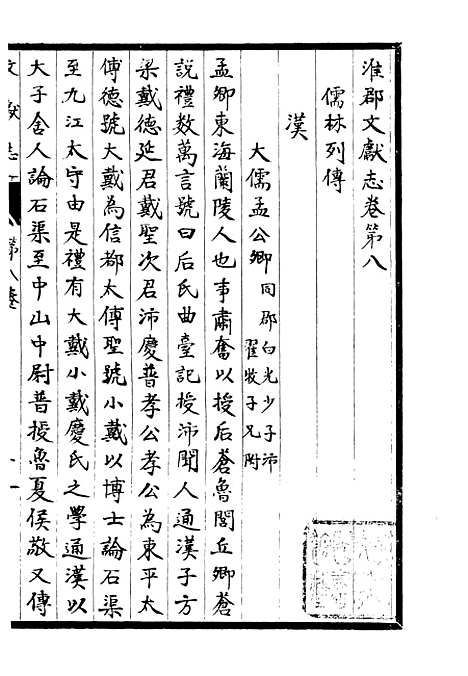 淮郡文獻志卷第八
儒林列傳
漢
大儒孟公卿同郡白光少子沛
翟牧子兄附
孟卿東海蘭陵人也事肅奮以授后蒼魯閭丘卿蒼
說禮数萬言號曰后氏曲臺記授沛聞人通漢子方
梁戴德延君戴聖次君沛慶普孝公孝公為東平太
傅德號大戴為信都太傅聖號小戴以博士論石渠
至九江太守由是禮有大戴小戴慶氏之學通漢以
大子舍人論石渠至中山中尉普授魯夏侯敬又傳
文獻志
第八卷